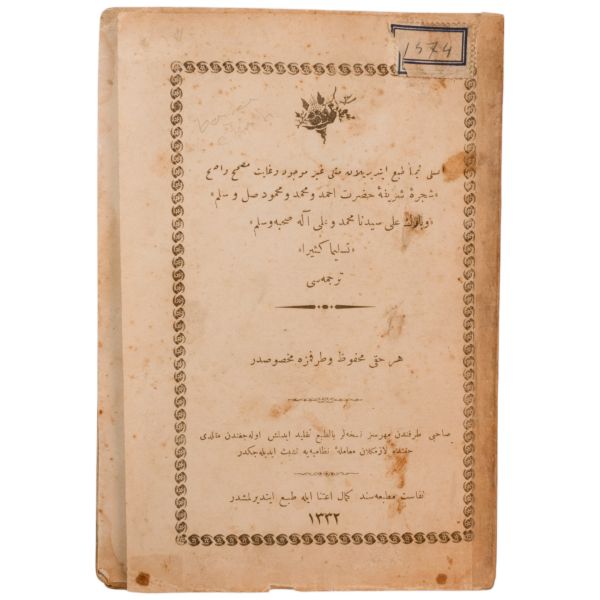 1574
اصلی تماماً طبع ایتدیریلان مثلی غیر موجود و غایت مصحح واصح
«شجرهٔ شریفهٔ حضرت احمد و محمد و محمود صل و سلم»
«وبارك علی سیدنا محمد و علی آله صحبه وسلم»
«تسلیما کثیرا»
ترجمه‌سی
هر حقی محفوظ و طرفمزه مخصوصدر
صاحبی طرفندن مهرسز نسخه‌لر بالطبع تقلید ایدلمش اوله‌جغندن مقلدی
حقنده لازمکلان معاملهٔ نظامیه‌یه تشبث ایدیله‌جکدر
نفاست مطبعه‌سنده کمال اعتنا ایله طبع ایتدیرلمشدر
١٣٣٢